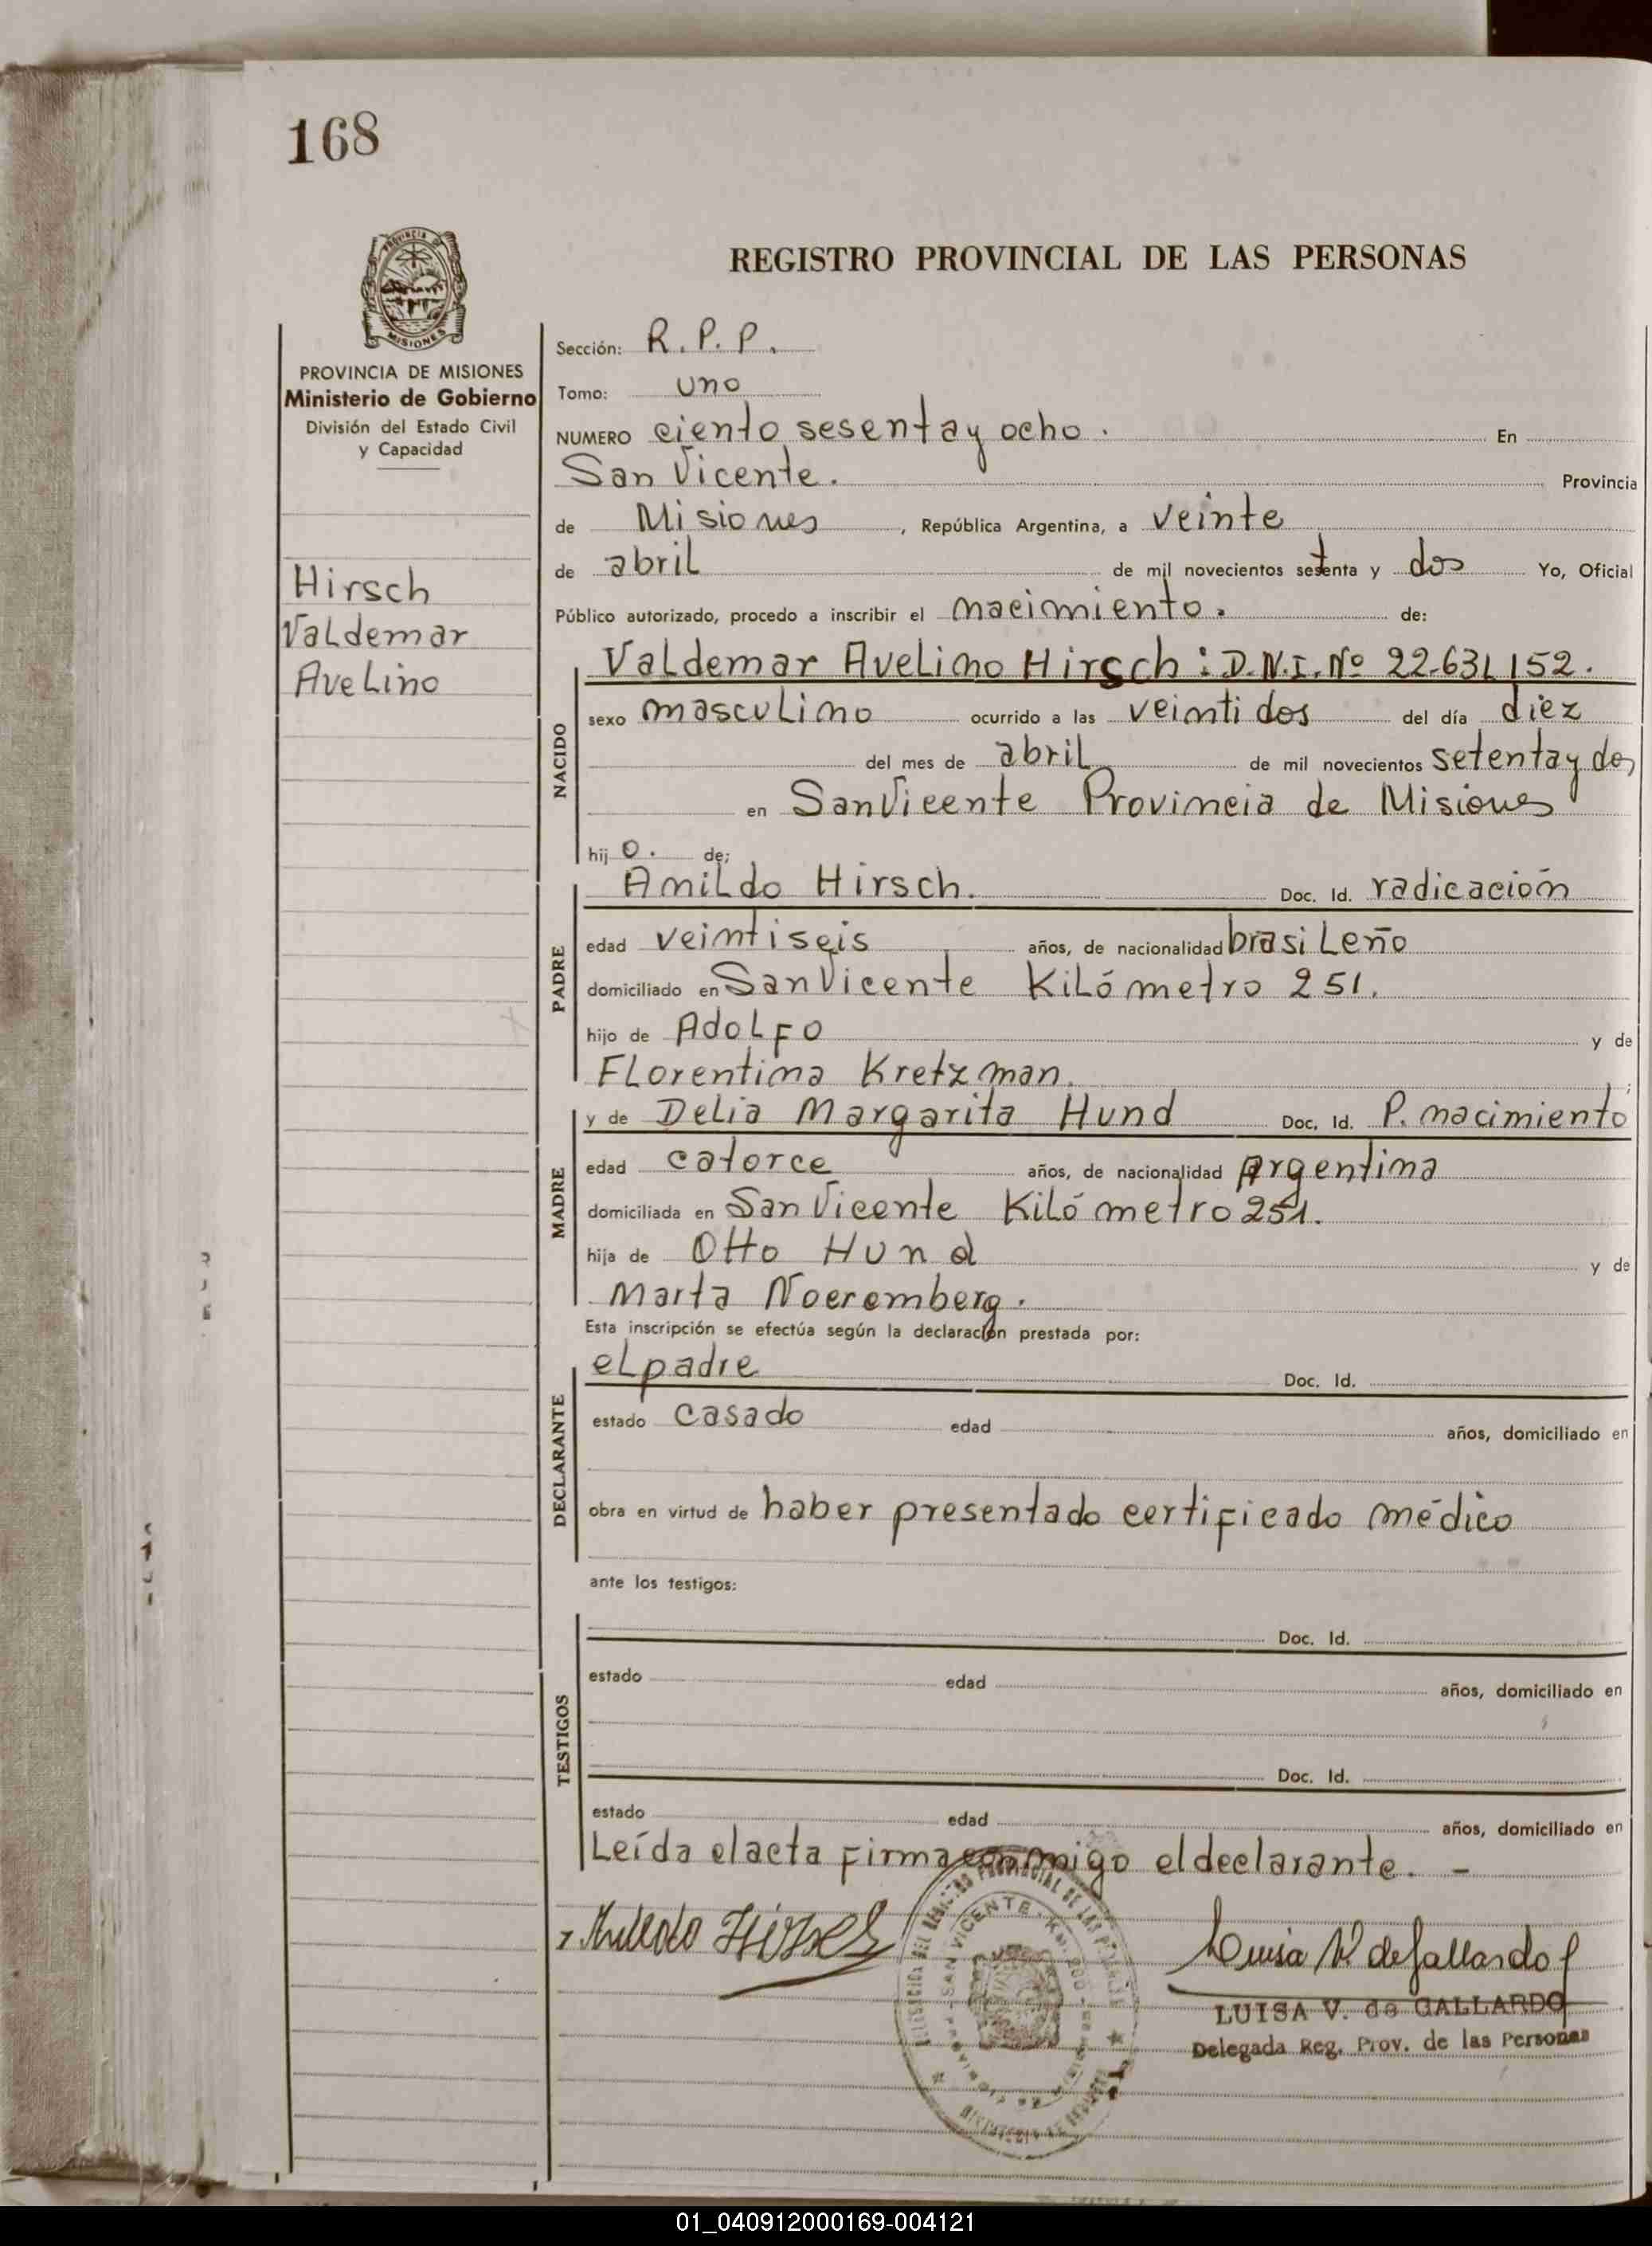 168
PROVINCIA DE MISIONES
Ministerio de Gobierno
División del Estado Civil
y Capacidad
Hirsch
Valdemar
Avelino
REGISTRO PROVINCIAL DE LAS PERSONAS
Sección: R. P. P.
Tomo: uno
NUMERO ciento sesenta y ocho. En
San Vicente. Provincia
de Misiones, República Argentina, a veinte
de abril de mil novecientos setenta y dos Yo, Oficial
Público autorizado, procedo a inscribir el nacimiento. de:
NACIDO
Valdemar Avelino Hirsch: D.N.I. Nº 22.631.152.
sexo masculino ocurrido a las veintidos del día diez
del mes de abril de mil novecientos setenta y dos
en San Vicente Provincia de Misiones
hijo. de;
PADRE
Anildo Hirsch. Doc. Id. radicación
edad veintiseis años, de nacionalidad brasileño
domiciliado en San Vicente Kilómetro 251.
hijo de Adolfo y de
Florentina Kretzman.;
MADRE
y de Delia Margarita Hund Doc. Id. P. nacimiento
edad catorce años, de nacionalidad Argentina
domiciliada en San Vicente Kilómetro 251.
hija de Otto Hund y de
Marta Noeremberg.
Esta inscripción se efectúa según la declaración prestada por:
DECLARANTE
el padre Doc. Id.
estado casado edad años, domiciliado en
obra en virtud de haber presentado certificado médico
ante los testigos:
TESTIGOS
Doc. Id.
estado edad años, domiciliado en
Doc. Id.
estado edad años, domiciliado en
Leída el acta firma conmigo el declarante. -
Hirsch
Luisa V. de Gallardo
LUISA V. de GALLARDO
Delegada Reg. Prov. de las Personas
SAN VICENTE
01_040912000169-004121